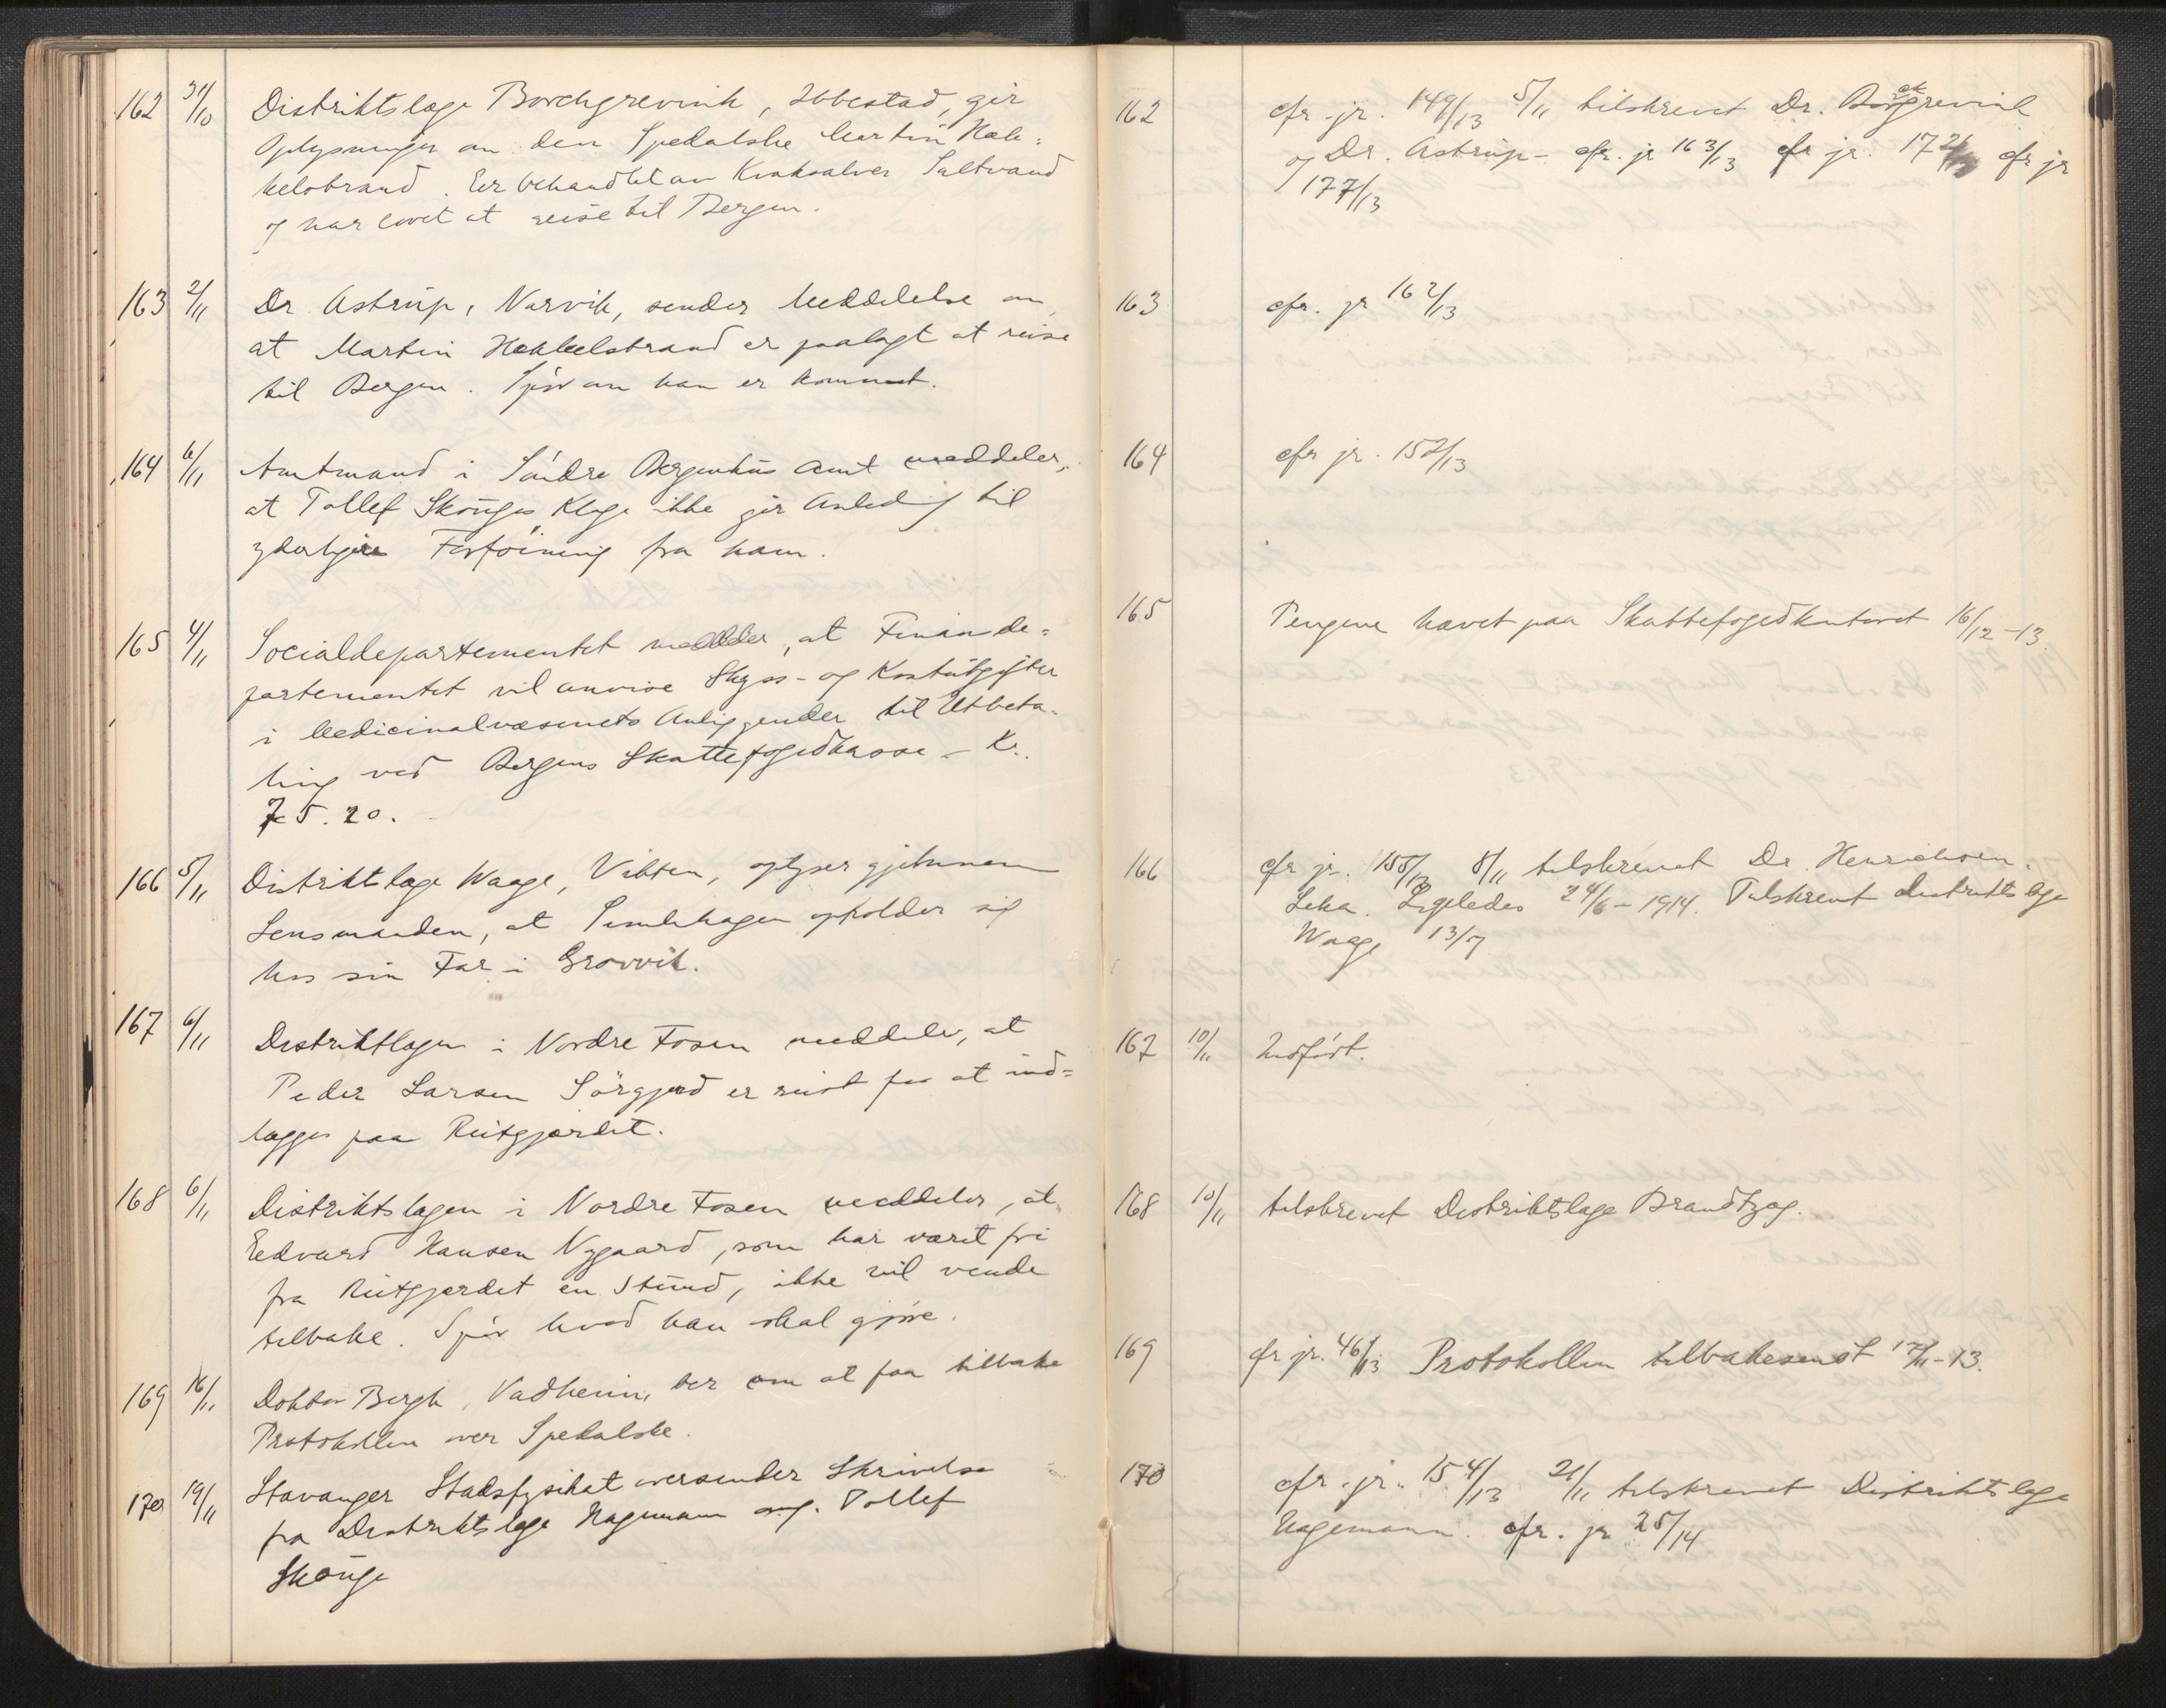 162 31/10 Distriktslæge Borchgrevink, Ibbestad, gir
Oplysninger om den Spedalske Martin Hæk=
kelstrand. Er behandlet av Kvaksalver Saltvand
og har lovet at reise til Bergen.
163 2/11 Dr Astrup, Narvik, sender Meddelelse om
at Martin Hekkelstrand er paalagt at reise
til Bergen. Spör om han er kommet.
164 6/11 Amtmand i Söndre Bergenhus Amt meddeler,
at Tollef Skouges Klage ikke gir Anledning til
yderligere Forföining fra ham.
165 4/11 Socialdepartementet meddeler, at Finansde=
partementet vil anvise Skyss- og Kostutgifter
i Medicinalvæsenets Anliggender til Utbeta-
ling ved Bergens Skattefogedkasse - Kr.
75.20.
166 5/11 Distriktslæge Waage, Vikten, oplyser gjennem
Lensmanden, at opholder sig
hos sin Far i Grovvik.
167 6/11 Distriktlægen i Nordre Fosen meddeler, at
Peder Larsen Sörgjerd er reist for at ind=
lægges paa Reitgjærdet.
168 6/11 Distriktslægen i Nordre Fosen meddeler, at
Edvard Hansen Nygaard, som har været fri
fra Reitgjerdet en Stund, ikke vil vende
tilbake. Spör hvad han skal gjöre.
169 16/11 Doktor Bergh, Vadheim, ber om at faa tilbake
Protokollen over Spedalske.
170 19/11 Stavanger Stadsfysikat oversender Skrivelse
fra Distriktslæge Hagemann ang. Tollef
Skouge
162 cfr. jr. 149/13 5/11 tilskrevet Dr. Borchgrevink
og Dr. Astrup - cfr. jr 163/13 cfr jr. 172/13 cfr jr
177/13
163 cfr. jr 162/13
164 cfr jr. 152/13
165 Pengene hævet paa Skattefogedkontoret 16/12-13.
166 cfr jr. 155/13 8/11 tilskrevet Dr. Henrichsen,
Leka. Ligeledes 24/6-1914. Tilskrevet distriktslæge
Waage 13/7
167 10/11 Indfört.
168 10/11 tilskrevet Distriktslæge Brandtzæg.
169 cfr jr. 46/13 Protokollen tilbakesendt 17/11-13.
170 cfr. jr. 154/13 21/11 tilskrevet Distriktslæge
Hagemann. cfr. jr 25/14